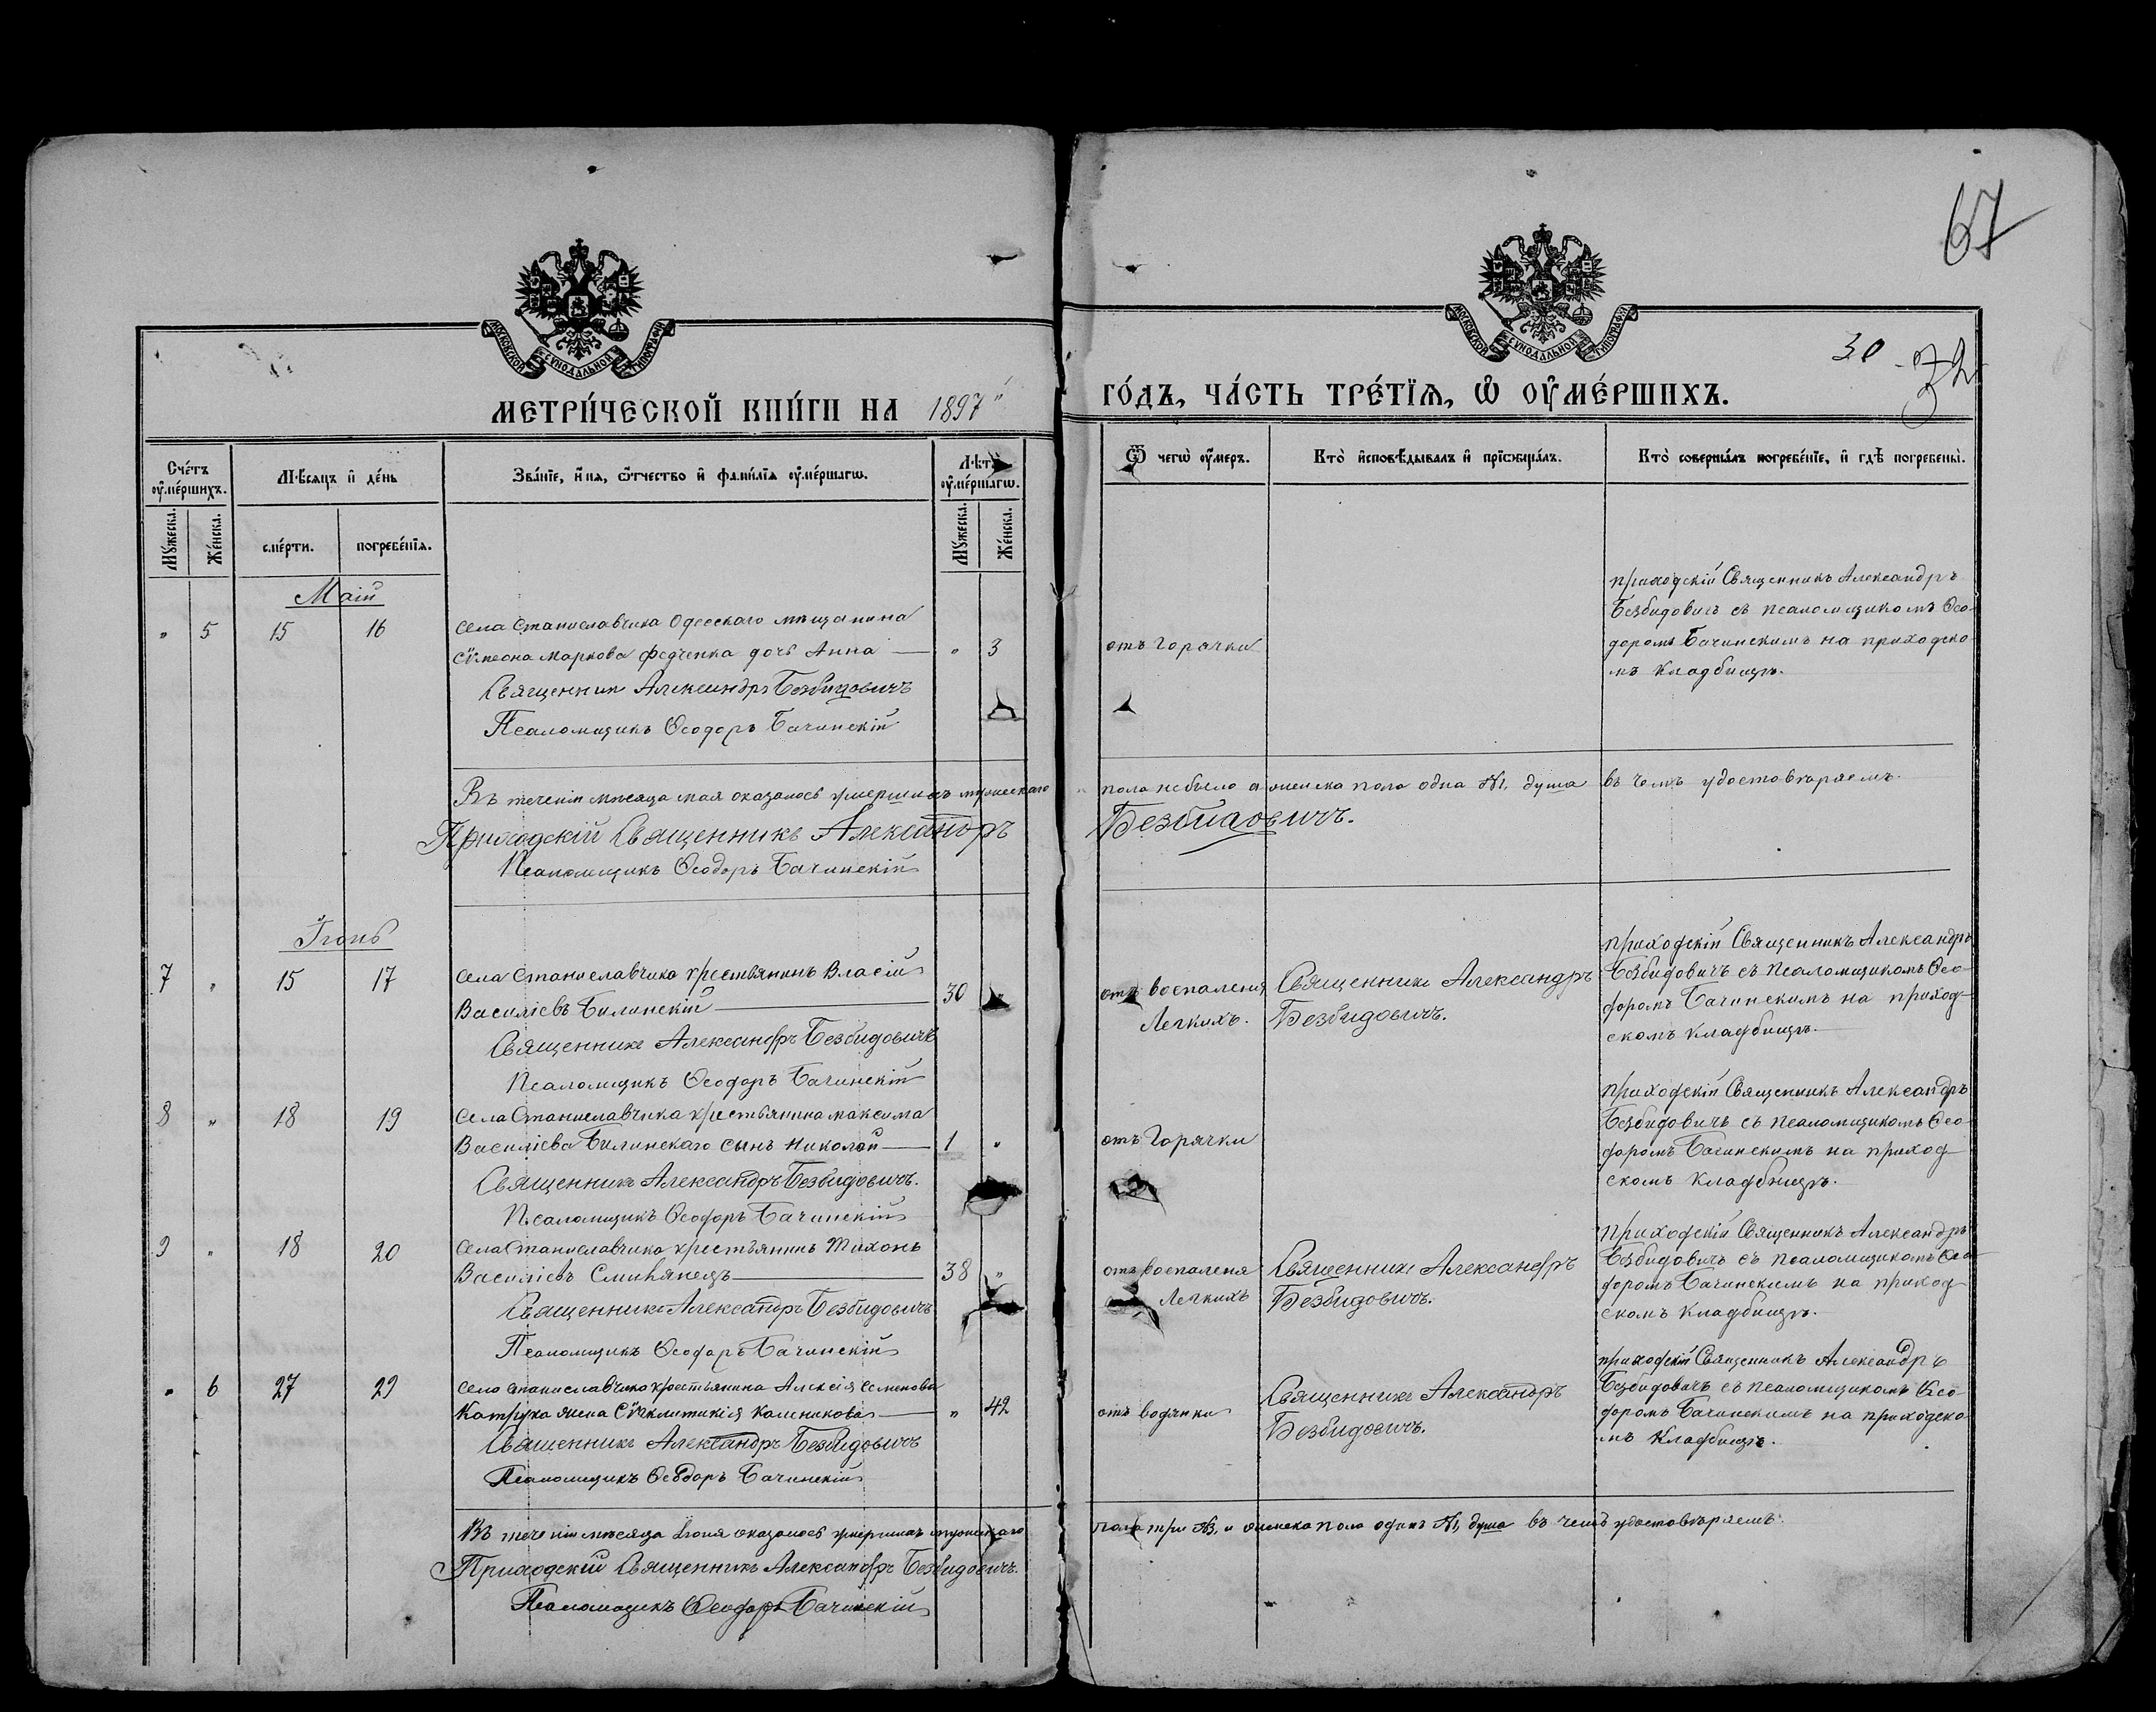 67
МОСКОВСКОЙ СѴНОДАЛЬНОЙ ТИПОГРАФІИ
МОСКОВСКОЙ СѴНОДАЛЬНОЙ ТИПОГРАФІИ
30
32
МЕТРИ́ЧЕСКОЙ КНИ́ГИ НА 1897 ГО́ДЪ, ЧА́СТЬ ТРЕ́ТЇѦ, Ѽ ОУ҆МЕ́РШИХЪ.
Сче́тъ оу҆ме́ршихъ.
Мѣ́сяцъ и҆ де́нь
Зва́нїе, и҆́мя, ѻ҆́тчество и҆ фами́лїя оу҆ме́ршагѡ.
Лѣ́та оу҆ме́ршагѡ.
Ѿ чегѡ̀ оу҆́меръ.
Кто̀ и҆сповѣ́дывалъ и҆ прїѡбща́лъ.
Кто̀ соверша́лъ погребе́нїе, и҆ гдѣ̀ погребены̀.
Мꙋ́жеска. Же́нска.
сме́рти. погребе́нїя.
Мꙋ́жеска. Же́нска.
Маій
" 5 15 16
села Станиславчика Одесскаго мѣщанина
Сѵмеона Маркова Федченка дочь Анна — " 3
Священникъ Александръ Безбидовичъ
Псаломщикъ Ѳеодоръ Бачинскій
отъ Горячки
приходскій Священникъ Александръ
Безбидовичъ съ псаломщикомъ Ѳео-
доромъ Бачинскимъ на приходско-
мъ кладбищѣ.
Въ теченіи мѣсяца мая оказалось умершихъ мужескаго пола небыло а женска пола одна №1, душа въ чемъ удостовѣряемъ.
Приходскій Священникъ Александръ Безбидовичъ.
Псаломщикъ Ѳеодоръ Бачинскій
Іюнь
7 " 15 17
села Станиславчика крестьянинъ Власій
Василіевъ Билинскій — 30 "
Священникъ Александръ Безбидовичъ
Псаломщикъ Ѳеодоръ Бачинскій
отъ воспаленя
Легкихъ.
Священникъ Александръ
Безбидовичъ.
приходскій Священникъ Александръ
Безбидовичъ съ псаломщикомъ Ѳео-
доромъ Бачинскимъ на приход-
скомъ кладбищѣ.
8 " 18 19
села Станиславчика крестьянина Максима
Василіева Билинскаго сынъ Николай — 1 "
Священникъ Александръ Безбидовичъ.
Псаломщикъ Ѳеодоръ Бачинскій
отъ Горячки
приходскій Священникъ Александръ
Безбидовичъ съ псаломщикомъ Ѳео-
доромъ Бачинскимъ на приход-
скомъ кладбищѣ.
9 " 18 20
села Станиславчика крестьянинъ Тихонъ
Василіевъ — 38 "
Священникъ Александръ Безбидовичъ
Псаломщикъ Ѳеодоръ Бачинскій
отъ воспаленя
Легкихъ
Священникъ Александръ
Безбидовичъ.
приходскій Священникъ Александръ
Безбидовичъ съ псаломщикомъ Ѳео-
доромъ Бачинскимъ на приход-
скомъ кладбищѣ.
" 6 27 29
село Станиславчика крестьянина Алексія Семенова
Катрука жена Сѵнклитикія Каленикова — " 42
Священникъ Александръ Безбидовичъ
Псаломщикъ Ѳеодоръ Бачинскій
отъ водянки
Священникъ Александръ
Безбидовичъ.
приходскій Священникъ Александръ
Безбидовичъ съ псаломщикомъ Ѳео-
доромъ Бачинскимъ на приходско-
мъ кладбищѣ.
Въ теченіи мѣсяца Іюня оказалось умершихъ мужескаго пола три №3, и женска пола одинъ №1, душа въ чемъ удостовѣряемъ.
Приходскій Священникъ Александръ Безбидовичъ.
Псаломщикъ Ѳеодоръ Бачинскій